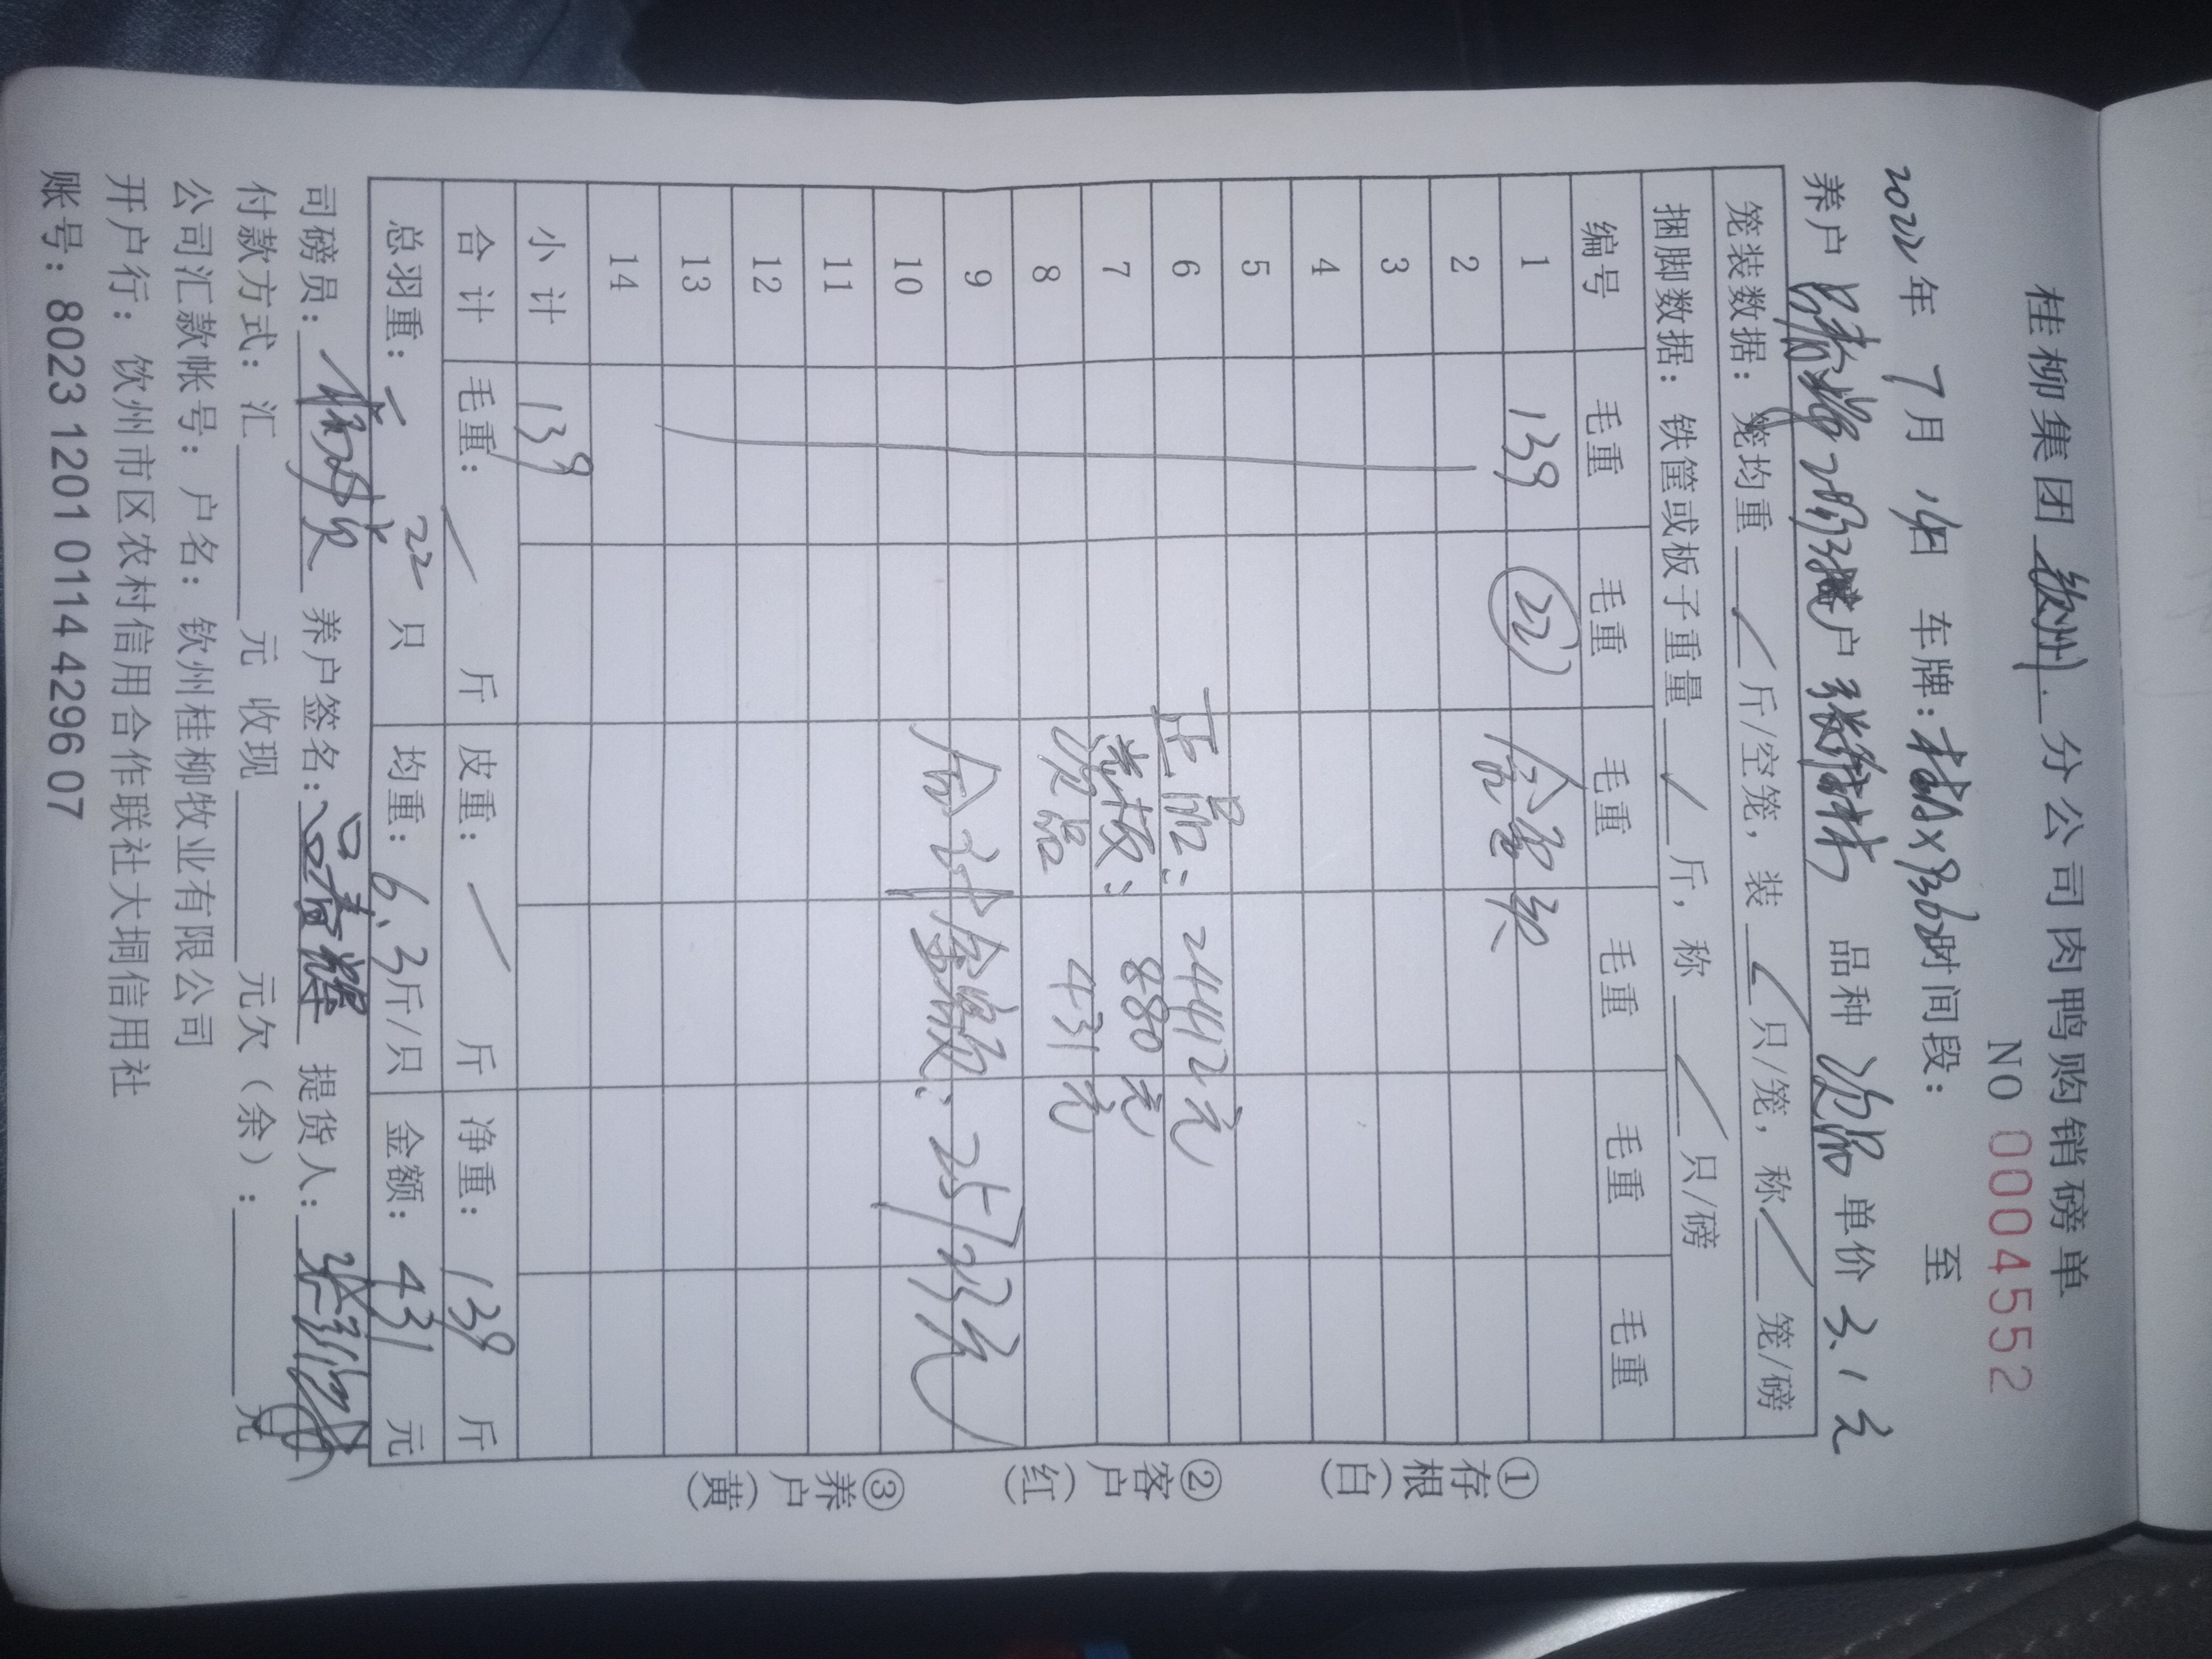 桂柳集团 钦州 分公司肉鸭购销磅单
NO 0004552
2022年 7月 日 车牌: 时间段: 至
养户 户 品种 次品 单价 3.1元
笼装数据: 笼均重 / 斤/空笼, 装 / 只/笼, 称 / 笼/磅
捆脚数据: 铁筐或板子重量 / 斤, 称 / 只/磅
编号 毛重 毛重 毛重 毛重 毛重 毛重
1 139 22
2
3
4
5
6 正品: 24412元
7 880元
8 次品 431元
9 合计金额: 25723元
10
11
12
13
14
小计 139
合计 毛重: / 斤 皮重: / 斤 净重: 139 斤
总羽重: 22 只 均重: 6.3斤/只 金额: 431 元
司磅员: 养户签名: 提货人:
付款方式: 汇 元 收现 元欠(余): 元
公司汇款帐号: 户名: 钦州桂柳牧业有限公司
开户行: 钦州市区农村信用合作联社大垌信用社
账号: 8023 1201 0114 4296 07
①存根(白) ②客户(红) ③养户(黄)